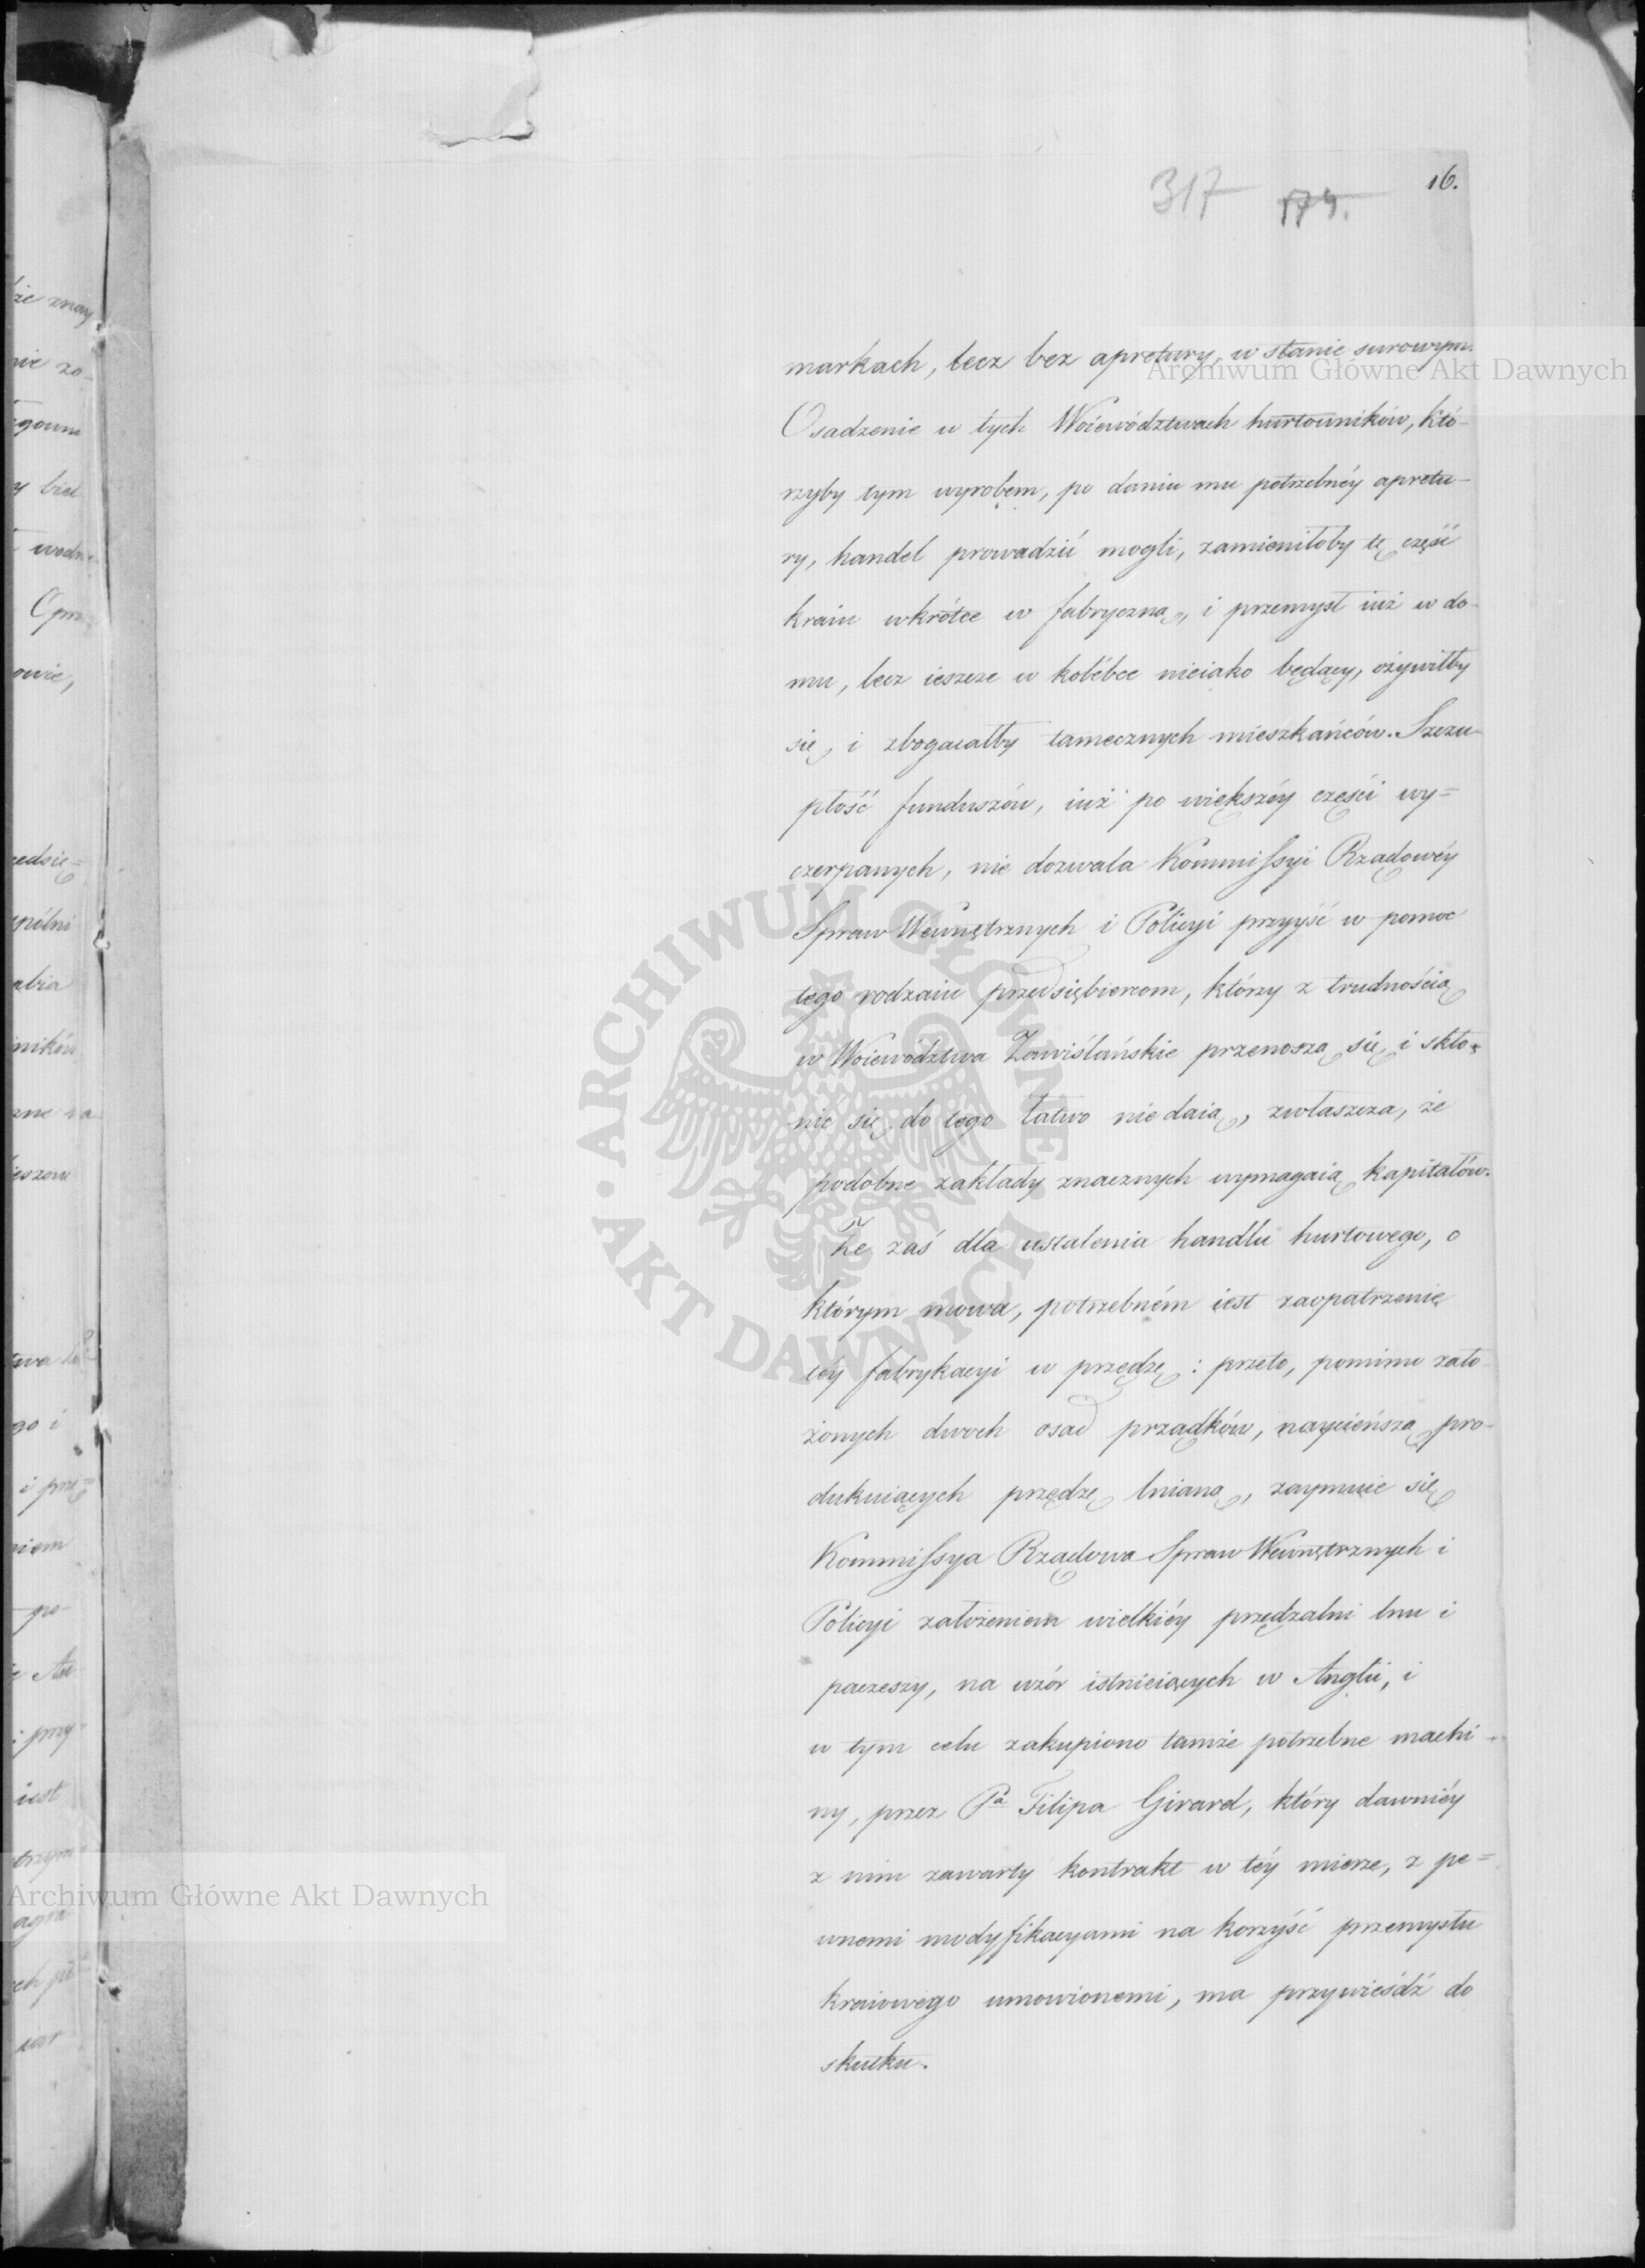 16.
317 174.
markach, lecz bez apretury, w stanie surowym.
Osadzenie w tych Woiewództwach hurtowników, któ-
rzyby tym wyrobem, po daniu mu potrzebnéy apretu-
ry, handel prowadzić mogli, zamieniłoby tę część
kraiu wkrótce w fabryczną, i przemysł iuż w do-
mu, lecz ieszcze w kolébce nieiako będący, ożywiłby
się, i zbogacałby tamecznych mieszkańców. Szczu-
płość funduszów, iuż po większéy części wy=
czerpanych, nie dozwala Kommissyi Rządowéy
Spraw Wewnętrznych i Policyi przyyść w pomoc
tego rodzaiu przedsiębiercom, którzy z trudnością
w Woiewództwa Zawiślańskie przenoszą się, i skło=
nić się do tego łatwo nie daią, zwłaszcza, że
podobne zakłady znacznych wymagaią kapitałów.
Że zaś dla ustalenia handlu hurtowego, o
którym mowa, potrzebném iest zaopatrzenie
téy fabrykacyi w przędzę: przeto, pomimo zało-
żonych dwóch osad prządków, naycieńszą pro-
dukuiących przędzę lnianą, zaymuie się
Kommissya Rządowa Spraw Wewnętrznych i
Policyi założeniem wielkiéy przędzalni lnu i
paczeszy, na wzór istnieiących w Anglii, i
w tym celu zakupiono tamże potrzebne machi-
ny, przez Pa Filipa Girard, który dawniéy
z nim zawarty kontrakt w téy mierze, z pe=
wnemi modyfikacyami na korzyść przemysłu
kraiowego umowionemi, ma przywieśdź do
skutku.
Archiwum Główne Akt Dawnych
ARCHIWUM GŁÓWNE
AKT DAWNYCH
Archiwum Główne Akt Dawnych